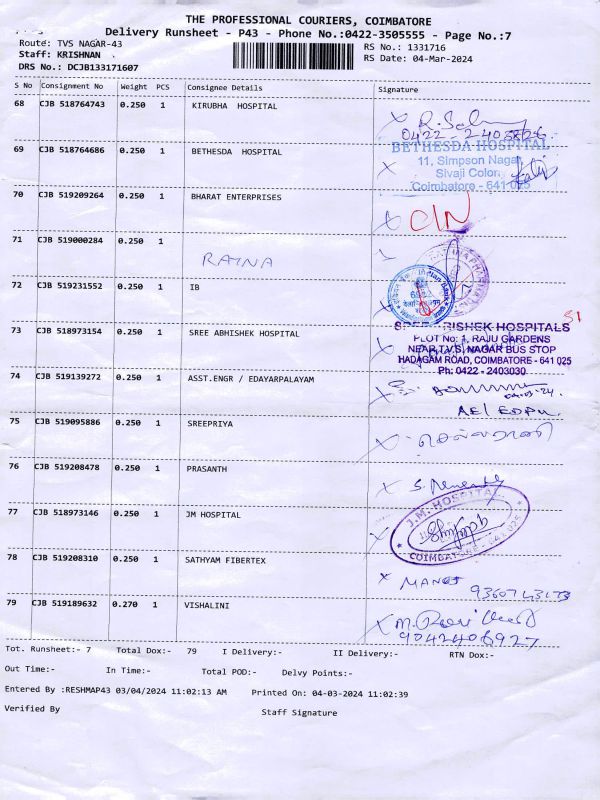 THE PROFESSIONAL COURIERS, COIMBATORE
Delivery Runsheet - P43 - Phone No.:0422-3505555 - Page No.:7
Route: TVS NAGAR-43
RS No.: 1331716
Staff: KRISHNAN
RS Date: 04-Mar-2024
DRS No.: DCJB133171607
S No Consignment No Weight PCS Consignee Details Signature
68 CJB 518764743 0.250 1 KIRUBHA HOSPITAL
69 CJB 518764686 0.250 1 BETHESDA HOSPITAL
BETHESDA HOSPITAL
11, Simpson Nagar,
Sivaji Colony
Coimbatore - 641 025
70 CJB 519209264 0.250 1 BHARAT ENTERPRISES
71 CJB 519000284 0.250 1
RATNA
72 CJB 519231552 0.250 1 IB
Indian Bank
73 CJB 518973154 0.250 1 SREE ABHISHEK HOSPITAL
51
SREE RISHEK HOSPITALS
PLOT No: 1, RAJU GARDENS
NEAR T.V.S. NAGAR BUS STOP
HADAGAM ROAD, COIMBATORE - 641 025
Ph: 0422 - 2403030
74 CJB 519139272 0.250 1 ASST.ENGR / EDAYARPALAYAM
04.03.24
AE/EDPM
75 CJB 519095886 0.250 1 SREEPRIYA
76 CJB 519208478 0.250 1 PRASANTH
77 CJB 518973146 0.250 1 JM HOSPITAL
J.M. HOSPITAL
COIMBATORE - 641 025
78 CJB 519208310 0.250 1 SATHYAM FIBERTEX
MANOJ
79 CJB 519189632 0.270 1 VISHALINI
9042406927
Tot. Runsheet:- 7 Total Dox:- 79 I Delivery:- II Delivery:- RTN Dox:-
Out Time:- In Time:- Total POD:- Delvy Points:-
Entered By :RESHMAP43 03/04/2024 11:02:13 AM Printed On: 04-03-2024 11:02:39
Verified By Staff Signature